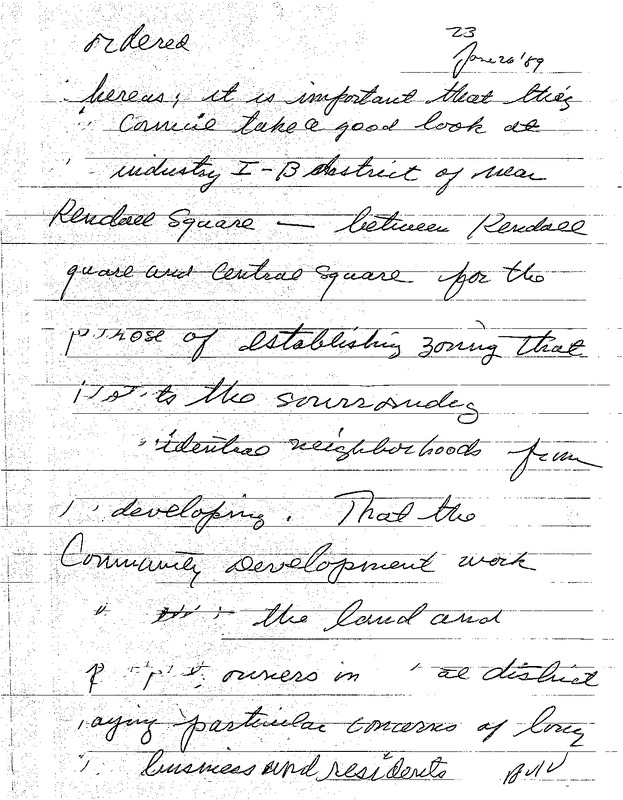 ordered
23
June 20 '89
hereas; it is important that this
Council take a good look at
industry I-B district of near
Kendall Square — between Kendall
quare and Central Square for the
pose of establishing zoning that
to the sourrounding
idential neighborhoods from
developing. That the
Community Development work
the land and
owners in district
aying particular concerns of long
business and residents